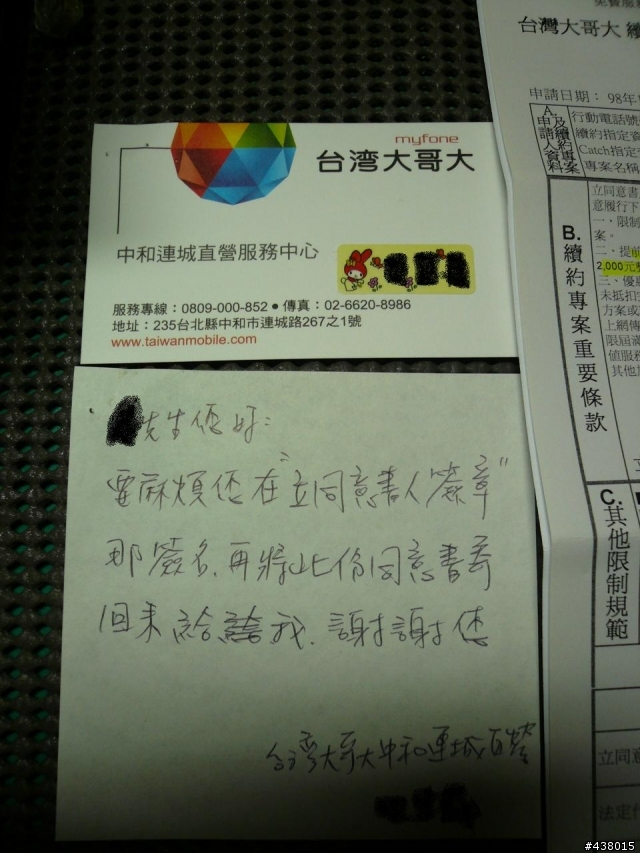 myfone
台湾大哥大
中和連城直營服務中心
服務專線：0809-000-852●傳真：02-6620-8986
地址：235台北縣中和市連城路267之1號
www.taiwanmobile.com
先生您好：
要麻煩您在“立同意書人簽章”
那簽名，再將此份同意書寄
回來給我，謝謝您
台灣大哥大中和連城直營
台灣大哥大 續
申請日期： 98年
A.申請人及續約專案資料
行動電話號
續約指定
Catch指定
專案名稱
B.續約專案重要條款
立同意書
意履行下
一．限制
案。
二．提前
2,000元
三、優
未抵扣
方案或
上網傳
限屆滿
值服務
其他
C.其他限制規範
立同意
法定代
#438015